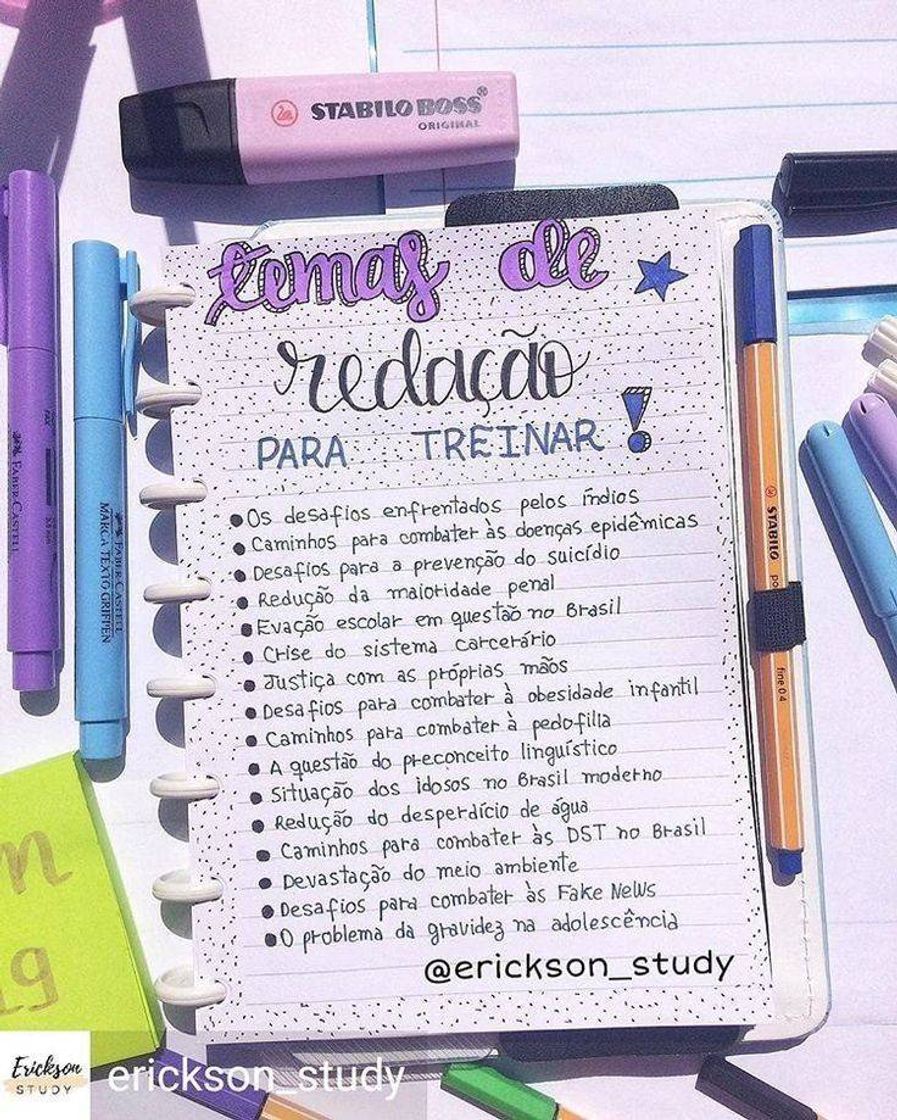 STABILO BOSS®
ORIGINAL
temas de
redação
PARA TREINAR!
• Os desafios enfrentados pelos índios
• Caminhos para combater às doenças epidêmicas
• Desafios para a prevenção do suicídio
• Redução da maioridade penal
• Evação escolar em questão no Brasil
• Crise do sistema carcerário
• Justiça com as próprias mãos
• Desafios para combater à obesidade infantil
• Caminhos para combater à pedofilia
• A questão do preconceito linguístico
• Situação dos idosos no Brasil moderno
• Redução do desperdício de água
• Caminhos para combater às DST no Brasil
• Devastação do meio ambiente
• Desafios para combater às Fake News
• O problema da gravidez na adolescência
@erickson_study
FABER-CASTELL
FABER-CASTELL
MARCA TEXTO GRIFPEN
STABILO
fine 0.4
Erickson
STUDY
erickson_study